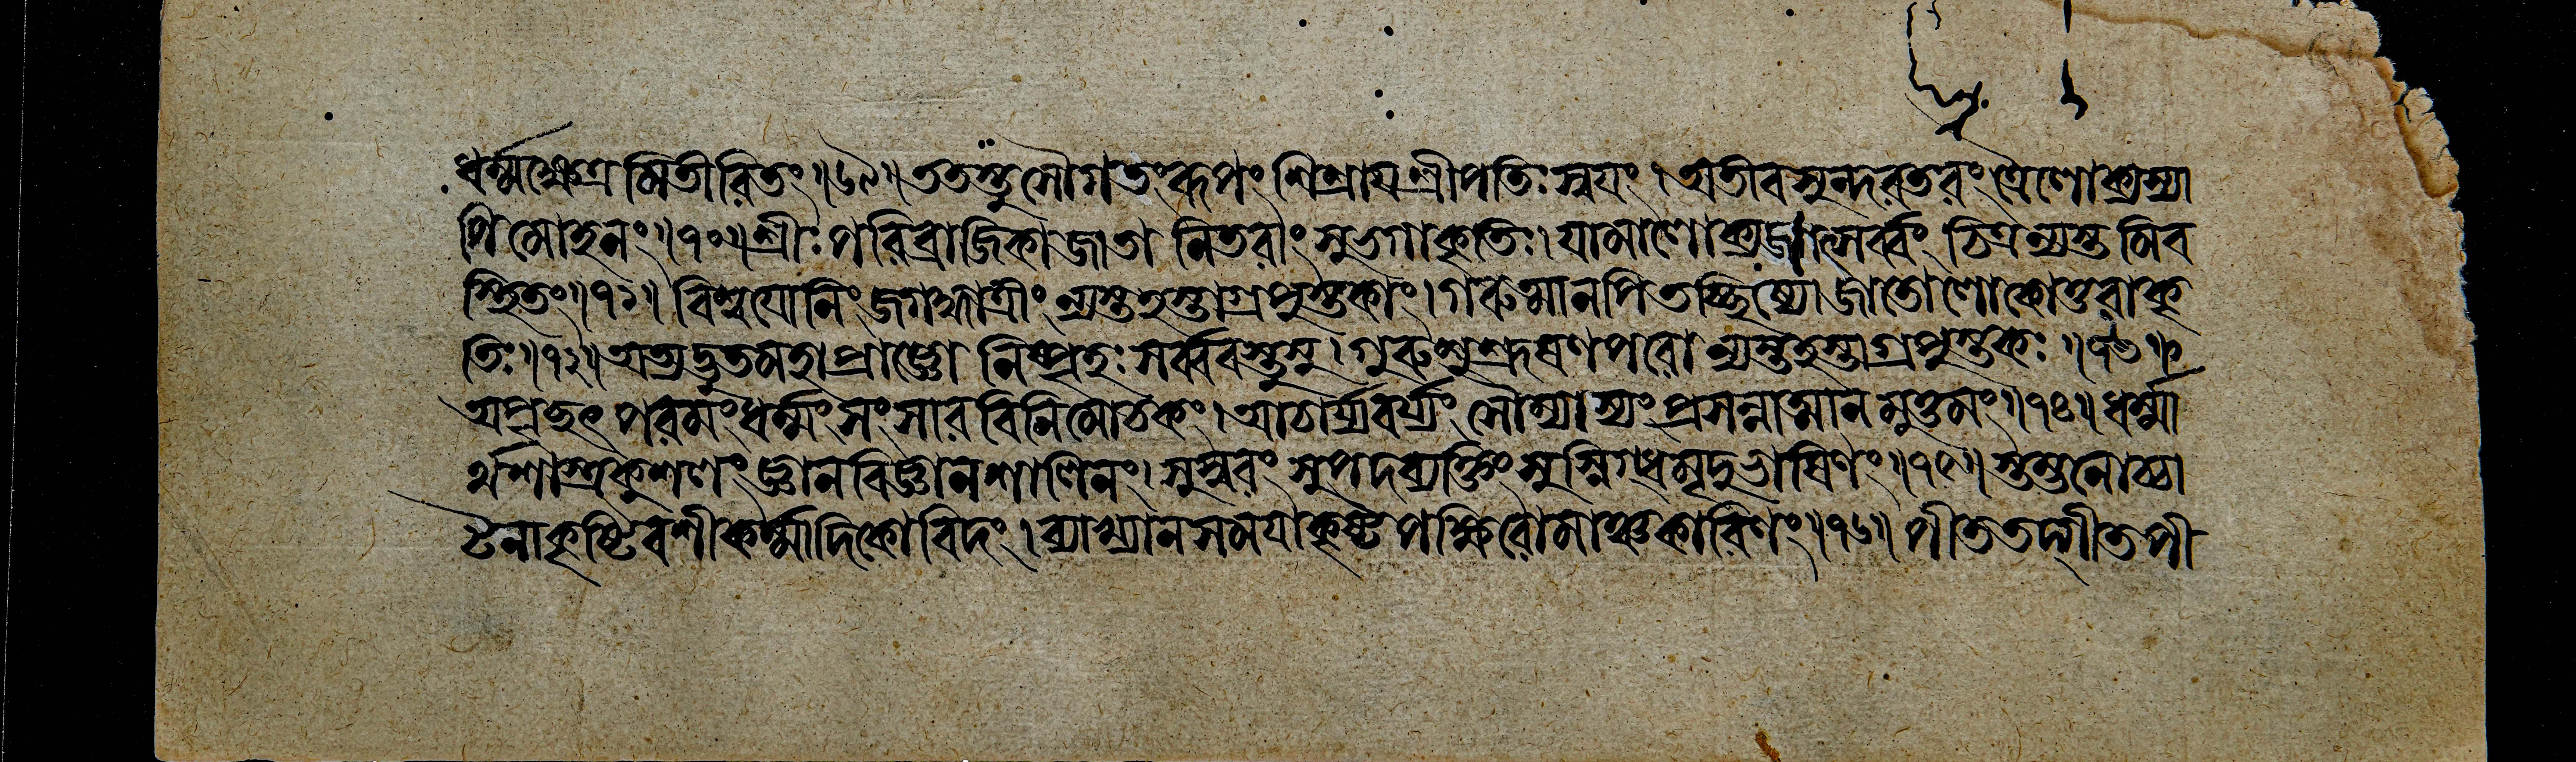 ধর্ম্মক্ষেত্রমিতীরিতং॥৬৯॥ততস্তুসৌগতংরূপং শিশ্রায়শ্রীপতিঃস্বয়ং।অতীবসুন্দরতরং ত্রৈলোক্যস্যা
পিমোহনং॥৭০॥শ্রীঃপরিব্রাজিকাজাতা নিতরাংসুভগাকৃতিঃ।যামালোক্যজগৎসর্ব্বং চিত্রন্যস্তমিব
স্থিতং॥৭১॥বিশ্বযোনিংজগদ্ধাত্রীংন্যস্তহস্তাগ্রপুস্তকাং।গরুত্মানপিতচ্ছিষ্যোজাতোলোকোত্তরাকৃ
তিঃ॥৭২॥অত্যদ্ভুতমহাপ্রাজ্ঞো নিস্পৃহঃসর্ব্ববস্তুসু।গুরুশুশ্রূষণপরোন্যস্তহস্তাগ্রপুস্তকঃ॥৭৩॥
অপৃচ্ছৎ পরমংধর্ম্মংসংসারবিনিমোচকং।আচার্য্যবর্য্যং সৌম্যাস্যংপ্রসন্নাত্মানমুত্তমং॥৭৪॥ধর্ম্মা
র্থশাস্ত্রকুশলংজ্ঞানবিজ্ঞানশালিনং।সুস্বরং সুপদব্যক্তিংসুস্নিগ্ধমৃদুভাষিণং॥৭৫॥স্তম্ভনোচ্চা
টনাকৃষ্টিবশীকর্ম্মাদিকোবিদং।ব্যাখ্যানসময়াকৃষ্টপক্ষিরোমাঞ্চকারিণং॥৭৬॥পীততদ্গীতপী